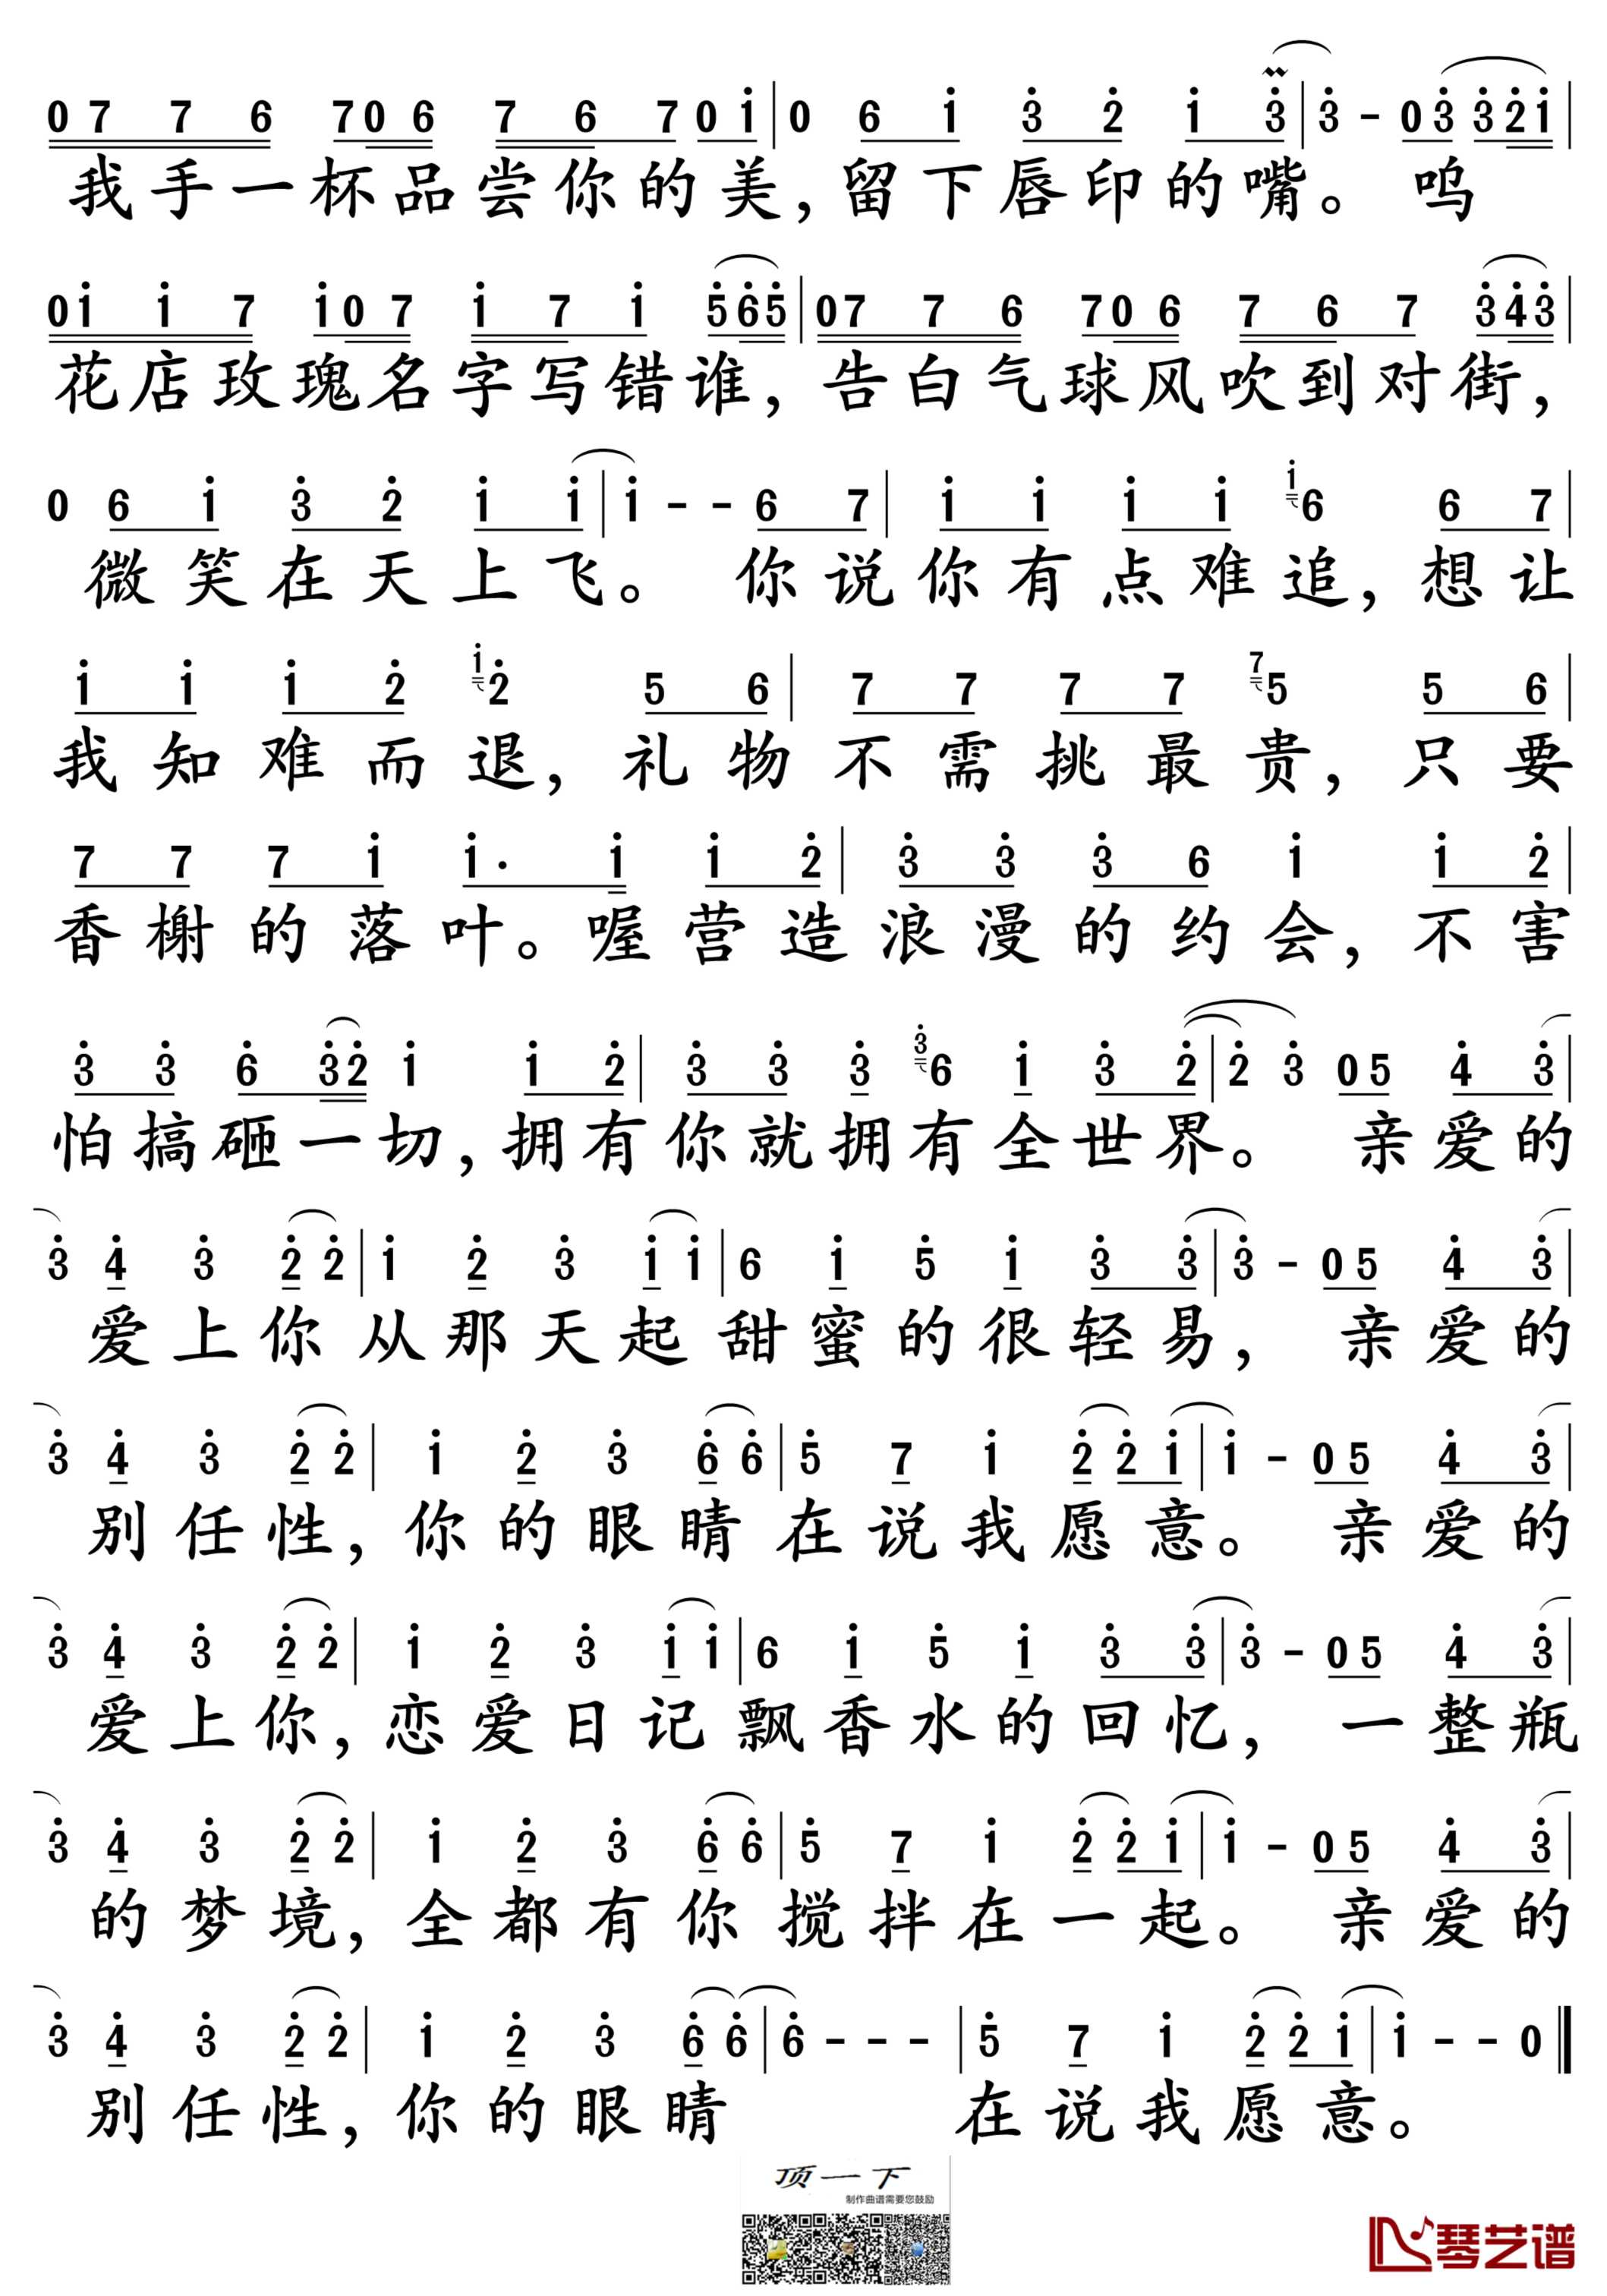 0 7 7 6 7 0 6 7 6 7 0 i | 0 6 i 3 2 i 3 | 3 - 0 3 3 2 i |
我手一杯品尝你的美,留下唇印的嘴。呜
0 i i 7 i 0 7 i 7 i 5 6 5 | 0 7 7 6 7 0 6 7 6 7 3 4 3 |
花店玫瑰名字写错谁,告白气球风吹到对街,
0 6 i 3 2 i i | i - - 6 7 | i i i i i 6 6 7 |
微笑在天上飞。 你说你有点难追,想让
i i i 2 i 2 5 6 | 7 7 7 7 7 5 5 6 |
我知难而退,礼物不需挑最贵,只要
7 7 7 i i · i i 2 | 3 3 3 6 i i 2 |
香榭的落叶。喔营造浪漫的约会,不害
3 3 6 3 2 i i 2 | 3 3 3 3 6 i 3 2 | 2 3 0 5 4 3 |
怕搞砸一切,拥有你就拥有全世界。 亲爱的
3 4 3 2 2 | i 2 3 i i | 6 i 5 i 3 3 | 3 - 0 5 4 3 |
爱上你从那天起甜蜜的很轻易, 亲爱的
3 4 3 2 2 | i 2 3 6 6 | 5 7 i 2 2 i | i - 0 5 4 3 |
别任性,你的眼睛在说我愿意。 亲爱的
3 4 3 2 2 | i 2 3 i i | 6 i 5 i 3 3 | 3 - 0 5 4 3 |
爱上你,恋爱日记飘香水的回忆, 一整瓶
3 4 3 2 2 | i 2 3 6 6 | 5 7 i 2 2 i | i - 0 5 4 3 |
的梦境,全都有你搅拌在一起。 亲爱的
3 4 3 2 2 | i 2 3 6 6 | 6 - - - | 5 7 i 2 2 i | i - - 0 ||
别任性,你的眼睛 在说我愿意。
顶一下
制作曲谱需要您鼓励
琴艺谱